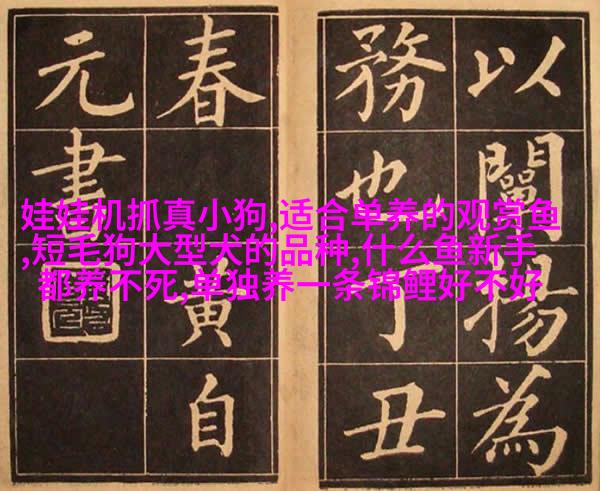 以闡揚為
務也丁丑
春黃自
元書
娃娃机抓真小狗,适合单养的观赏鱼
,短毛狗大型犬的品种,什么鱼新手
都养不死,单独养一条锦鲤好不好